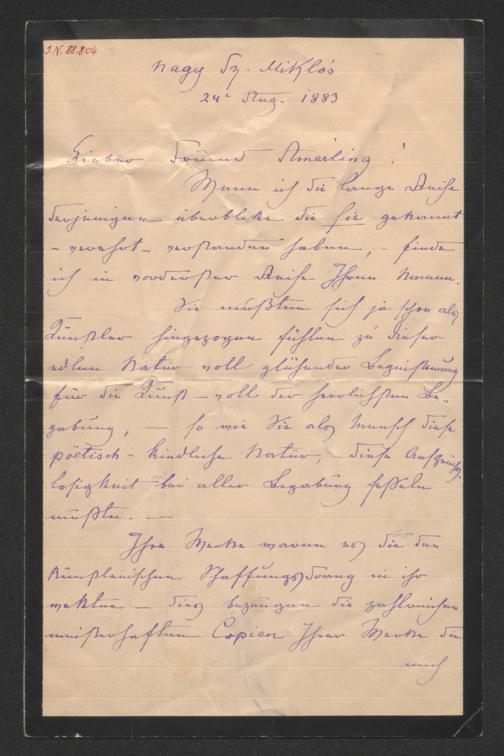 J.N. 88.804
Nagy Sz. Miklós
24t Aug. 1883
Lieber Freund Amerling!
Wenn ich die lange Reihe
derjenigen überblike die sie gekannt
– verehrt – verstanden haben, – finde
ich in vorderster Reihe Ihren Namen.
Sie mußten sich ja schon als
Künstler hingezogen fühlen zu dieser
edlen Natur voll glühender Begeisterung
für die Kunst – voll der herrlichsten Be-
gabung, – so wie Sie als Mensch diese
poëtisch-kindliche Natur, – diese Anspruchs-
losigkeit bei aller Begabung fesseln
mußte. –
Ihre Werke waren es die den
künstlerischen Schaffungsdrang in ihr
wekten – dies bezeugen die zahlreichen
meisterhaften Copien Ihrer Werke die
mich